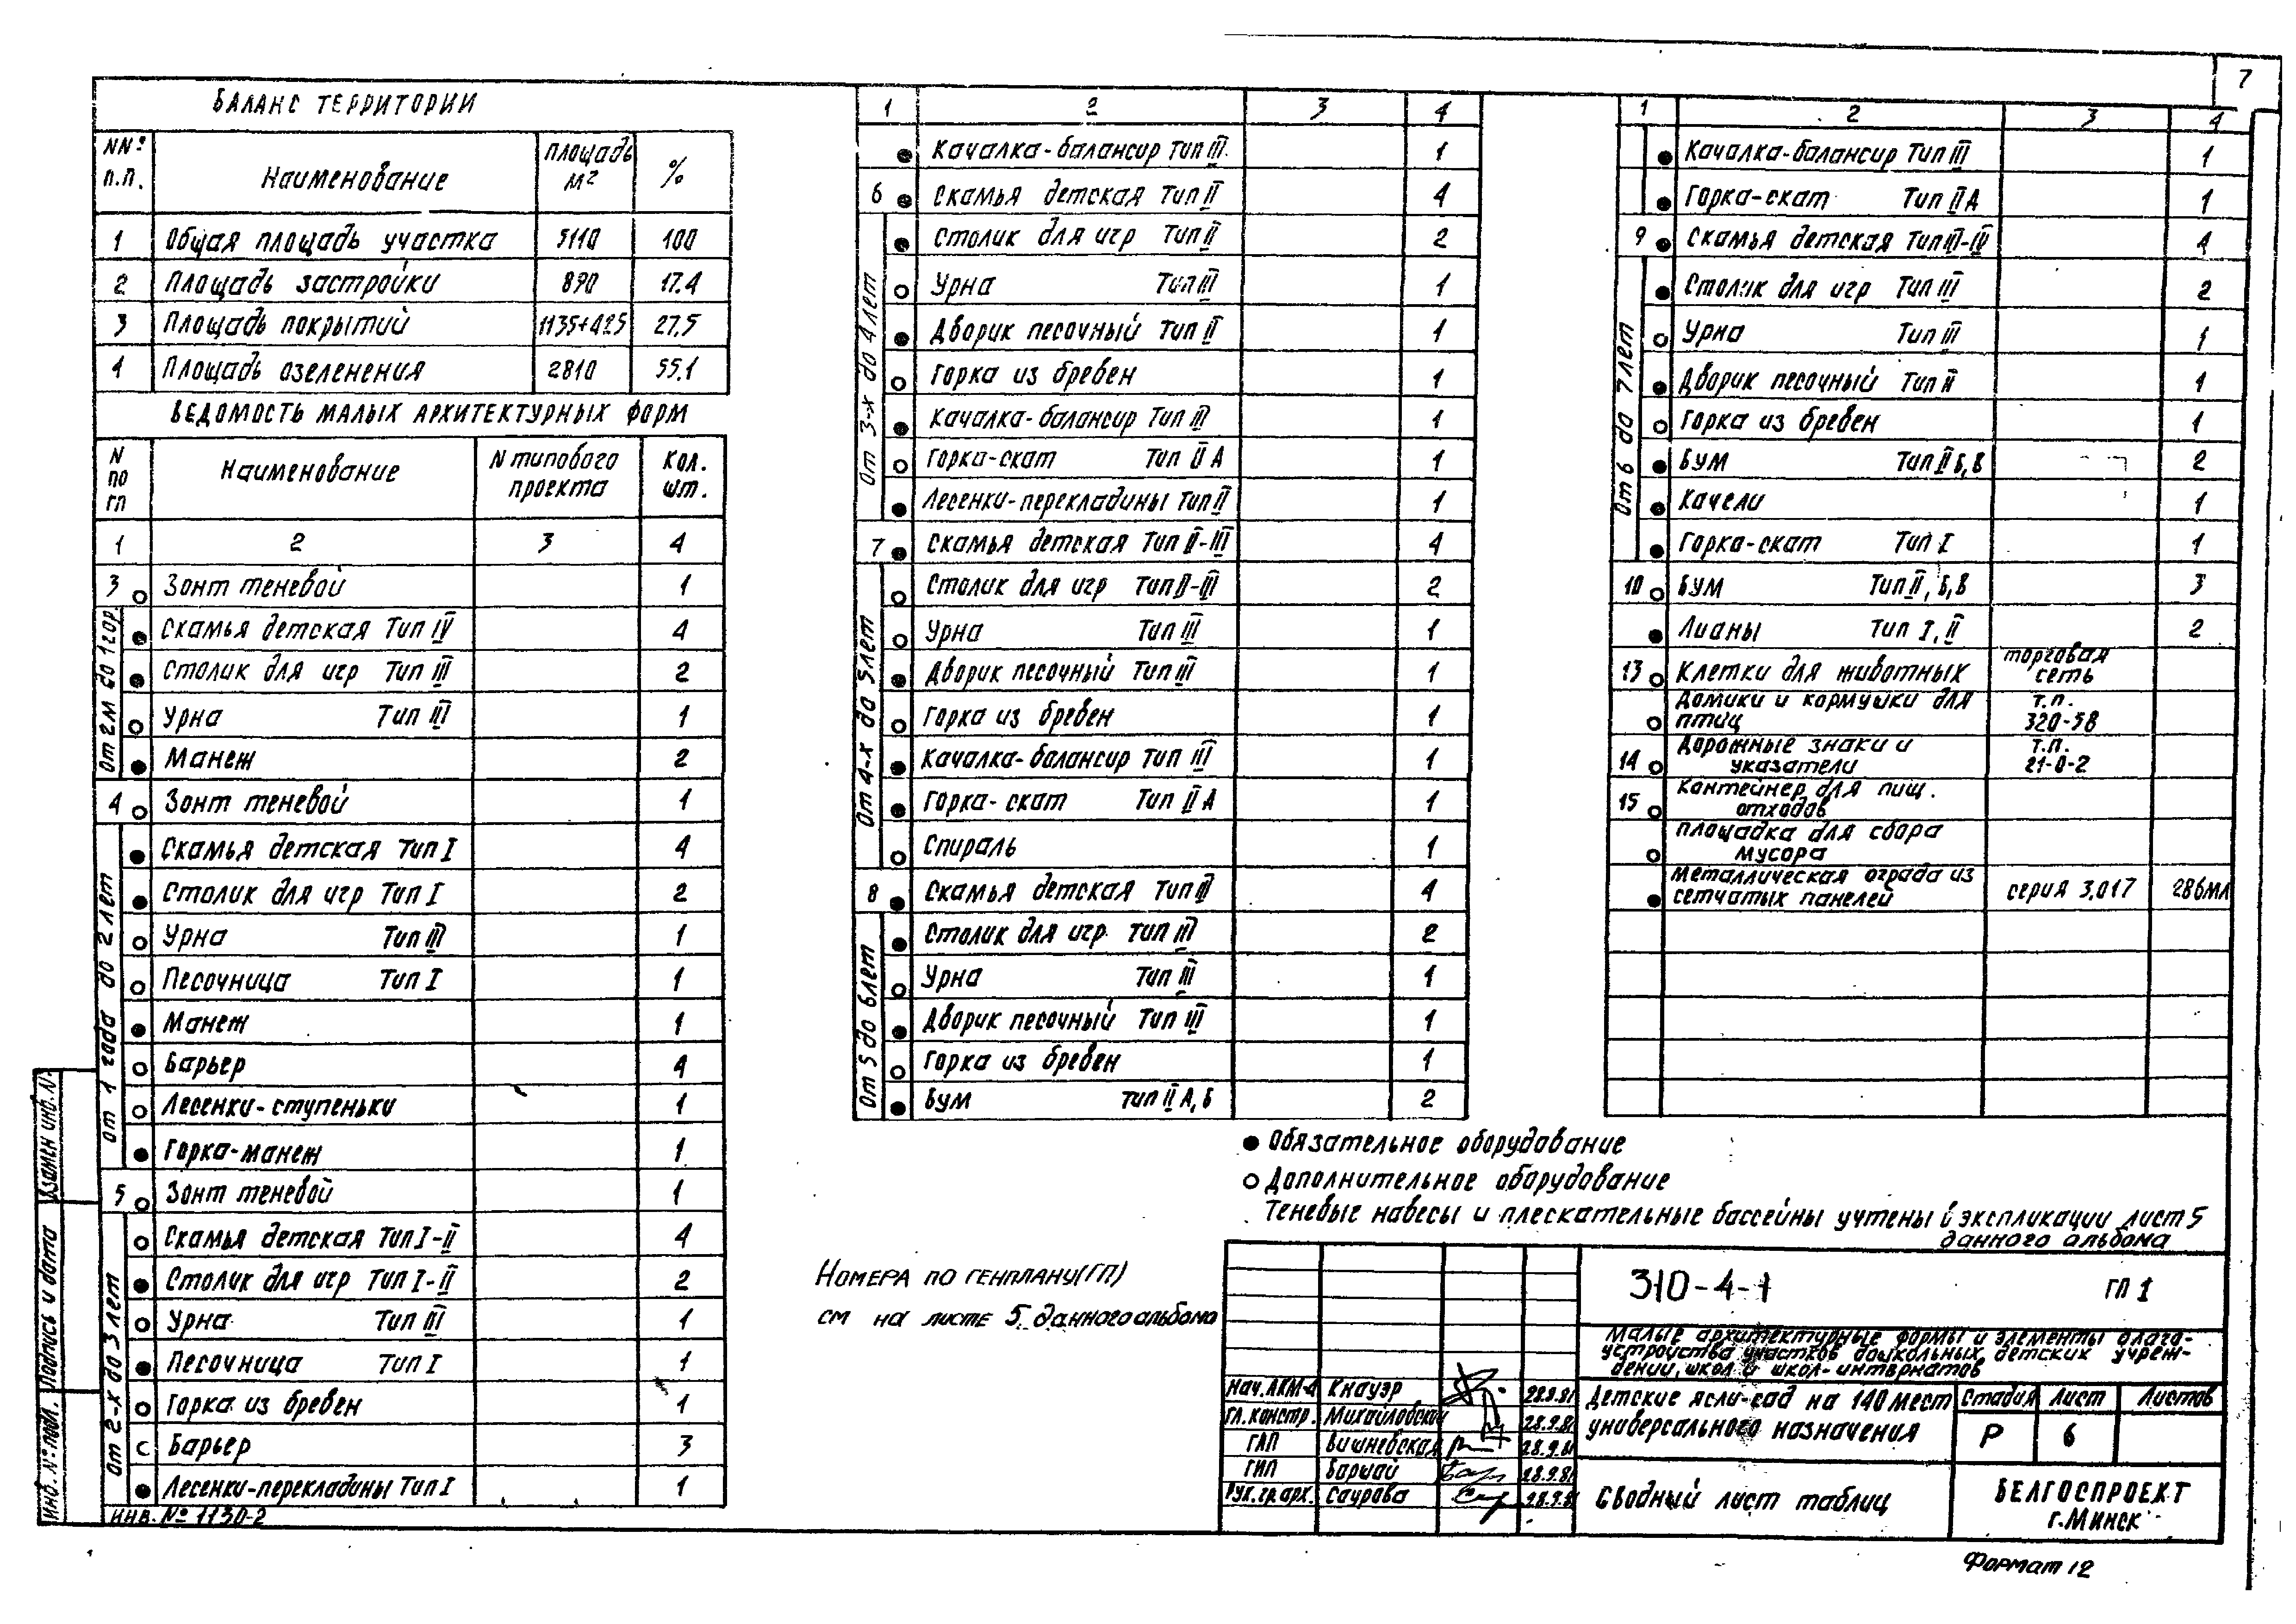 7
БАЛАНС ТЕРРИТОРИИ
NNº п.п. Наименование площадь м² %
1 Общая площадь участка 5110 100
2 Площадь застройки 890 17.4
3 Площадь покрытий 1135+425 27,5
4 Площадь озеленения 2810 55.1
ВЕДОМОСТЬ МАЛЫХ АРХИТЕКТУРНЫХ ФОРМ
N по гп Наименование N типового проекта Кол. шт.
1 2 3 4
3 ○ Зонт теневой 1
От 2м до 1 гор.
● Скамья детская Тип IV 4
● Столик для игр Тип III 2
○ Урна Тип III 1
● Манеж 2
4 ○ Зонт теневой 1
от 1 года до 2 лет
● Скамья детская Тип I 4
● Столик для игр Тип I 2
○ Урна Тип III 1
○ Песочница Тип I 1
● Манеж 1
○ Барьер 4
○ Лесенки-ступеньки 1
● Горка-манеж 1
5 ○ Зонт теневой 1
От 2-х до 3 лет
○ Скамья детская Тип I-II 4
● Столик для игр Тип I-II 2
○ Урна Тип III 1
● Песочница Тип I 1
○ Горка из бревен 1
○ Барьер 3
● Лесенки-перекладины Тип I 1
инв. № 1130-2
1 2 3 4
● Качалка-балансир Тип III 1
6 ● Скамья детская Тип II 4
от 3-х до 4 лет
● Столик для игр Тип II 2
○ Урна Тип III 1
● Дворик песочный Тип II 1
○ Горка из бревен 1
● Качалка-балансир Тип III 1
○ Горка-скат Тип II А 1
● Лесенки-перекладины Тип II 1
7 ● Скамья детская Тип II-III 4
От 4-х до 5 лет
○ Столик для игр Тип II-III 2
○ Урна Тип III 1
● Дворик песочный Тип III 1
○ Горка из бревен 1
● Качалка-балансир Тип III 1
● Горка-скат Тип II А 1
○ Спираль 1
8 ● Скамья детская Тип III 4
От 5 до 6 лет
● Столик для игр Тип III 2
○ Урна Тип III 1
● Дворик песочный Тип III 1
○ Горка из бревен 1
● Бум Тип II А, Б 2
1 2 3 4
● Качалка-балансир Тип III 1
● Горка-скат Тип II А 1
9 ● Скамья детская Тип III-IV 4
От 6 до 7 лет
● Столик для игр Тип III 2
○ Урна Тип III 1
● Дворик песочный Тип II 1
○ Горка из бревен 1
● Бум Тип II Б, В 2
● Качели 1
● Горка-скат Тип I 1
10 ○ Бум Тип II, Б, В 3
● Лианы Тип I, II 2
13 ○ Клетки для животных торговая сеть
○ Домики и кормушки для птиц т.п. 320-58
14 ○ Дорожные знаки и указатели т.п. 21-0-2
15 ○ Контейнер для пищ. отходов
○ площадка для сбора мусора
● Металлическая ограда из сетчатых панелей серия 3.017 286мл
● Обязательное оборудование
○ Дополнительное оборудование
Теневые навесы и плескательные бассейны учтены в экспликации лист 5
данного альбома
Номера по генплану (ГП)
см на листе 5 данного альбома
310-4-1 ГП 1
Малые архитектурные формы и элементы благо-
устройства участков дошкольных детских учреж-
дений, школ и школ-интернатов
Нач. АКМ-4 Кнауэр 28.9.81
Гл. констр. Михайловский 28.9.81
ГАП Вишневская 28.9.81
ГИП Баршай 28.9.81
Рук. гр. арх. Саурова 28.9.81
Детские ясли-сад на 140 мест
универсального назначения
Стадия Лист Листов
Р 6
Сводный лист таблиц
БЕЛГОСПРОЕКТ
г. Минск
Формат 12
Взамен инв. №
Подпись и дата
Инв. № подл.